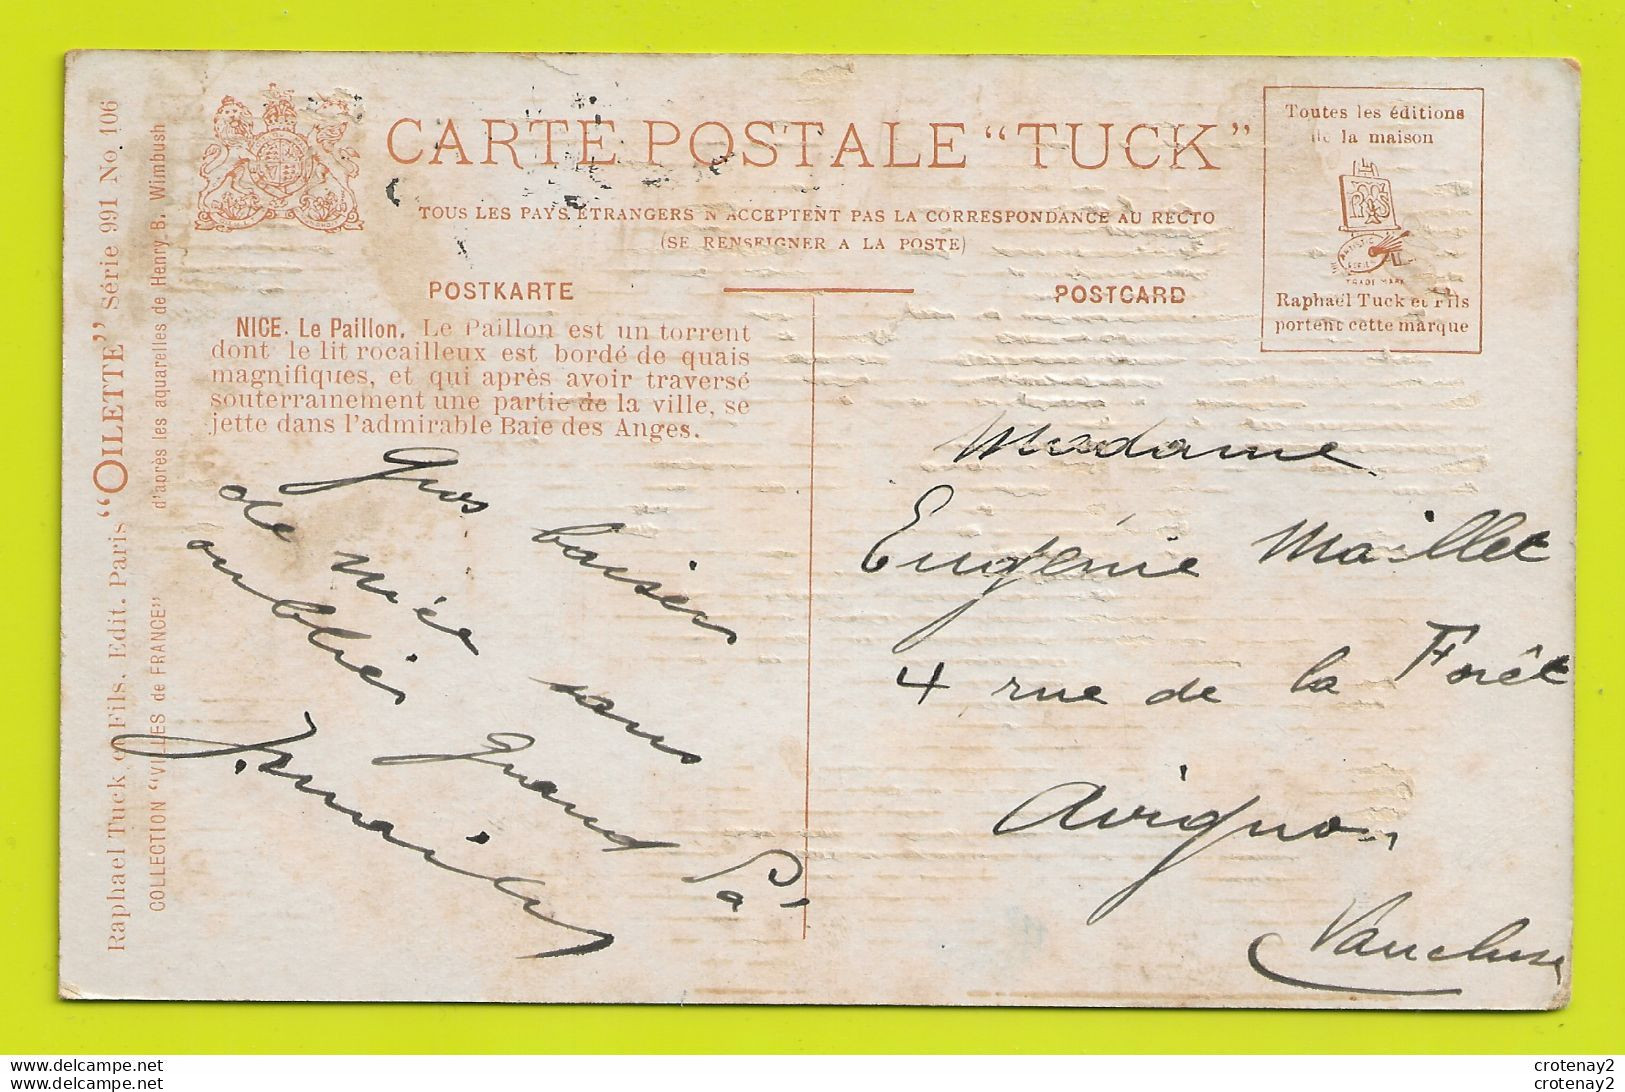 CARTE POSTALE "TUCK"
TOUS LES PAYS ETRANGERS N'ACCEPTENT PAS LA CORRESPONDANCE AU RECTO
(SE RENSEIGNER A LA POSTE)
POSTKARTE
POSTCARD
Toutes les éditions
de la maison
ARTISTIC
SERIES
TRADE MARK
Raphaël Tuck et Fils
portent cette marque
Raphael Tuck & Fils. Edit. Paris "OILETTE" Série 991 No. 106
COLLECTION "VILLES de FRANCE" d'après les aquarelles de Henry B. Wimbush
NICE. Le Paillon. Le Paillon est un torrent
dont le lit rocailleux est bordé de quais
magnifiques, et qui après avoir traversé
souterrainement une partie de la ville, se
jette dans l'admirable Baie des Anges.
Gros baisers
de Nice sans
oublier grand Pa
Madame
Eugénie Maillet
4 rue de la Forêt
Avignon
Vaucluse
crotenay2
crotenay2